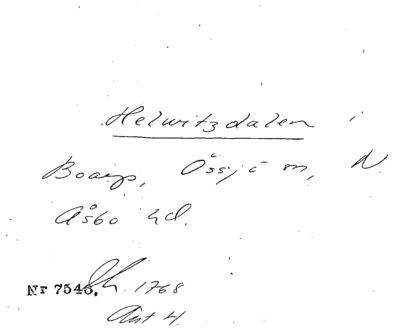 Helwitzdalen i
Boarp, Össjö sn, N.
Åsbo hd.
Nr 7546. 1768
Akt 4.